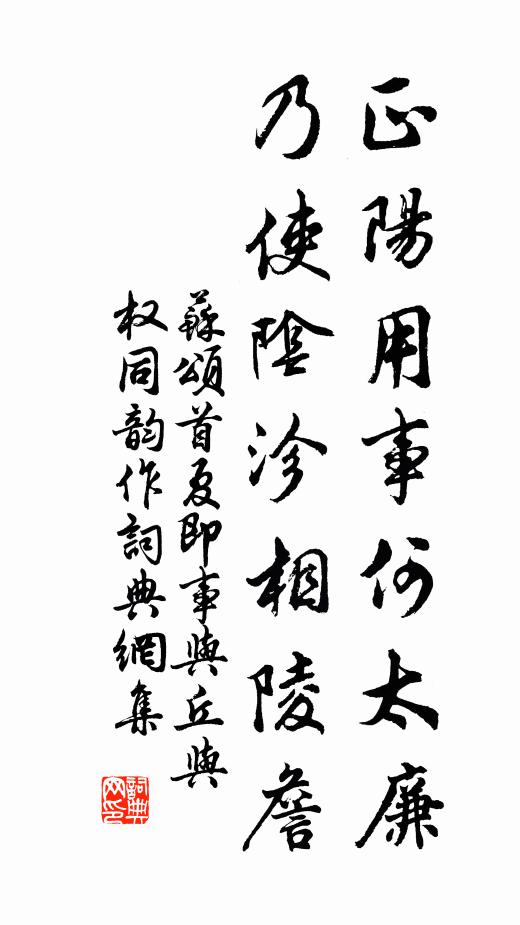 正陽用事何太廉
乃使陰沴相陵詹
蘇頌首夏即事與丘與
权同韵作詞典網集
詞典网印